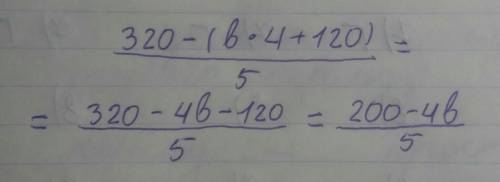 320-(в·4+120)/5 =
= 320-4в-120/5 = 200-4в/5